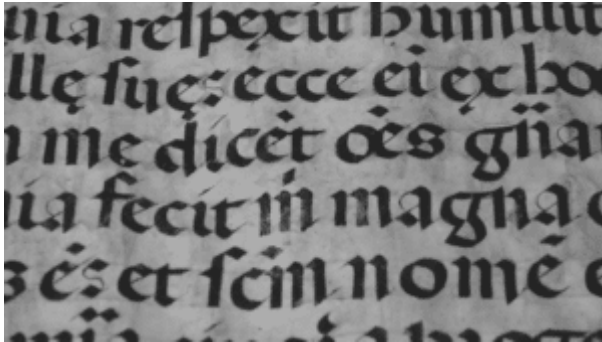 uia reſpexit humilit
llę ſuę: ecce ei̅ ex ho
me dicēt oēs gn̄a
uia fecit m̄ magna
ē: et ſcm̄ nomē